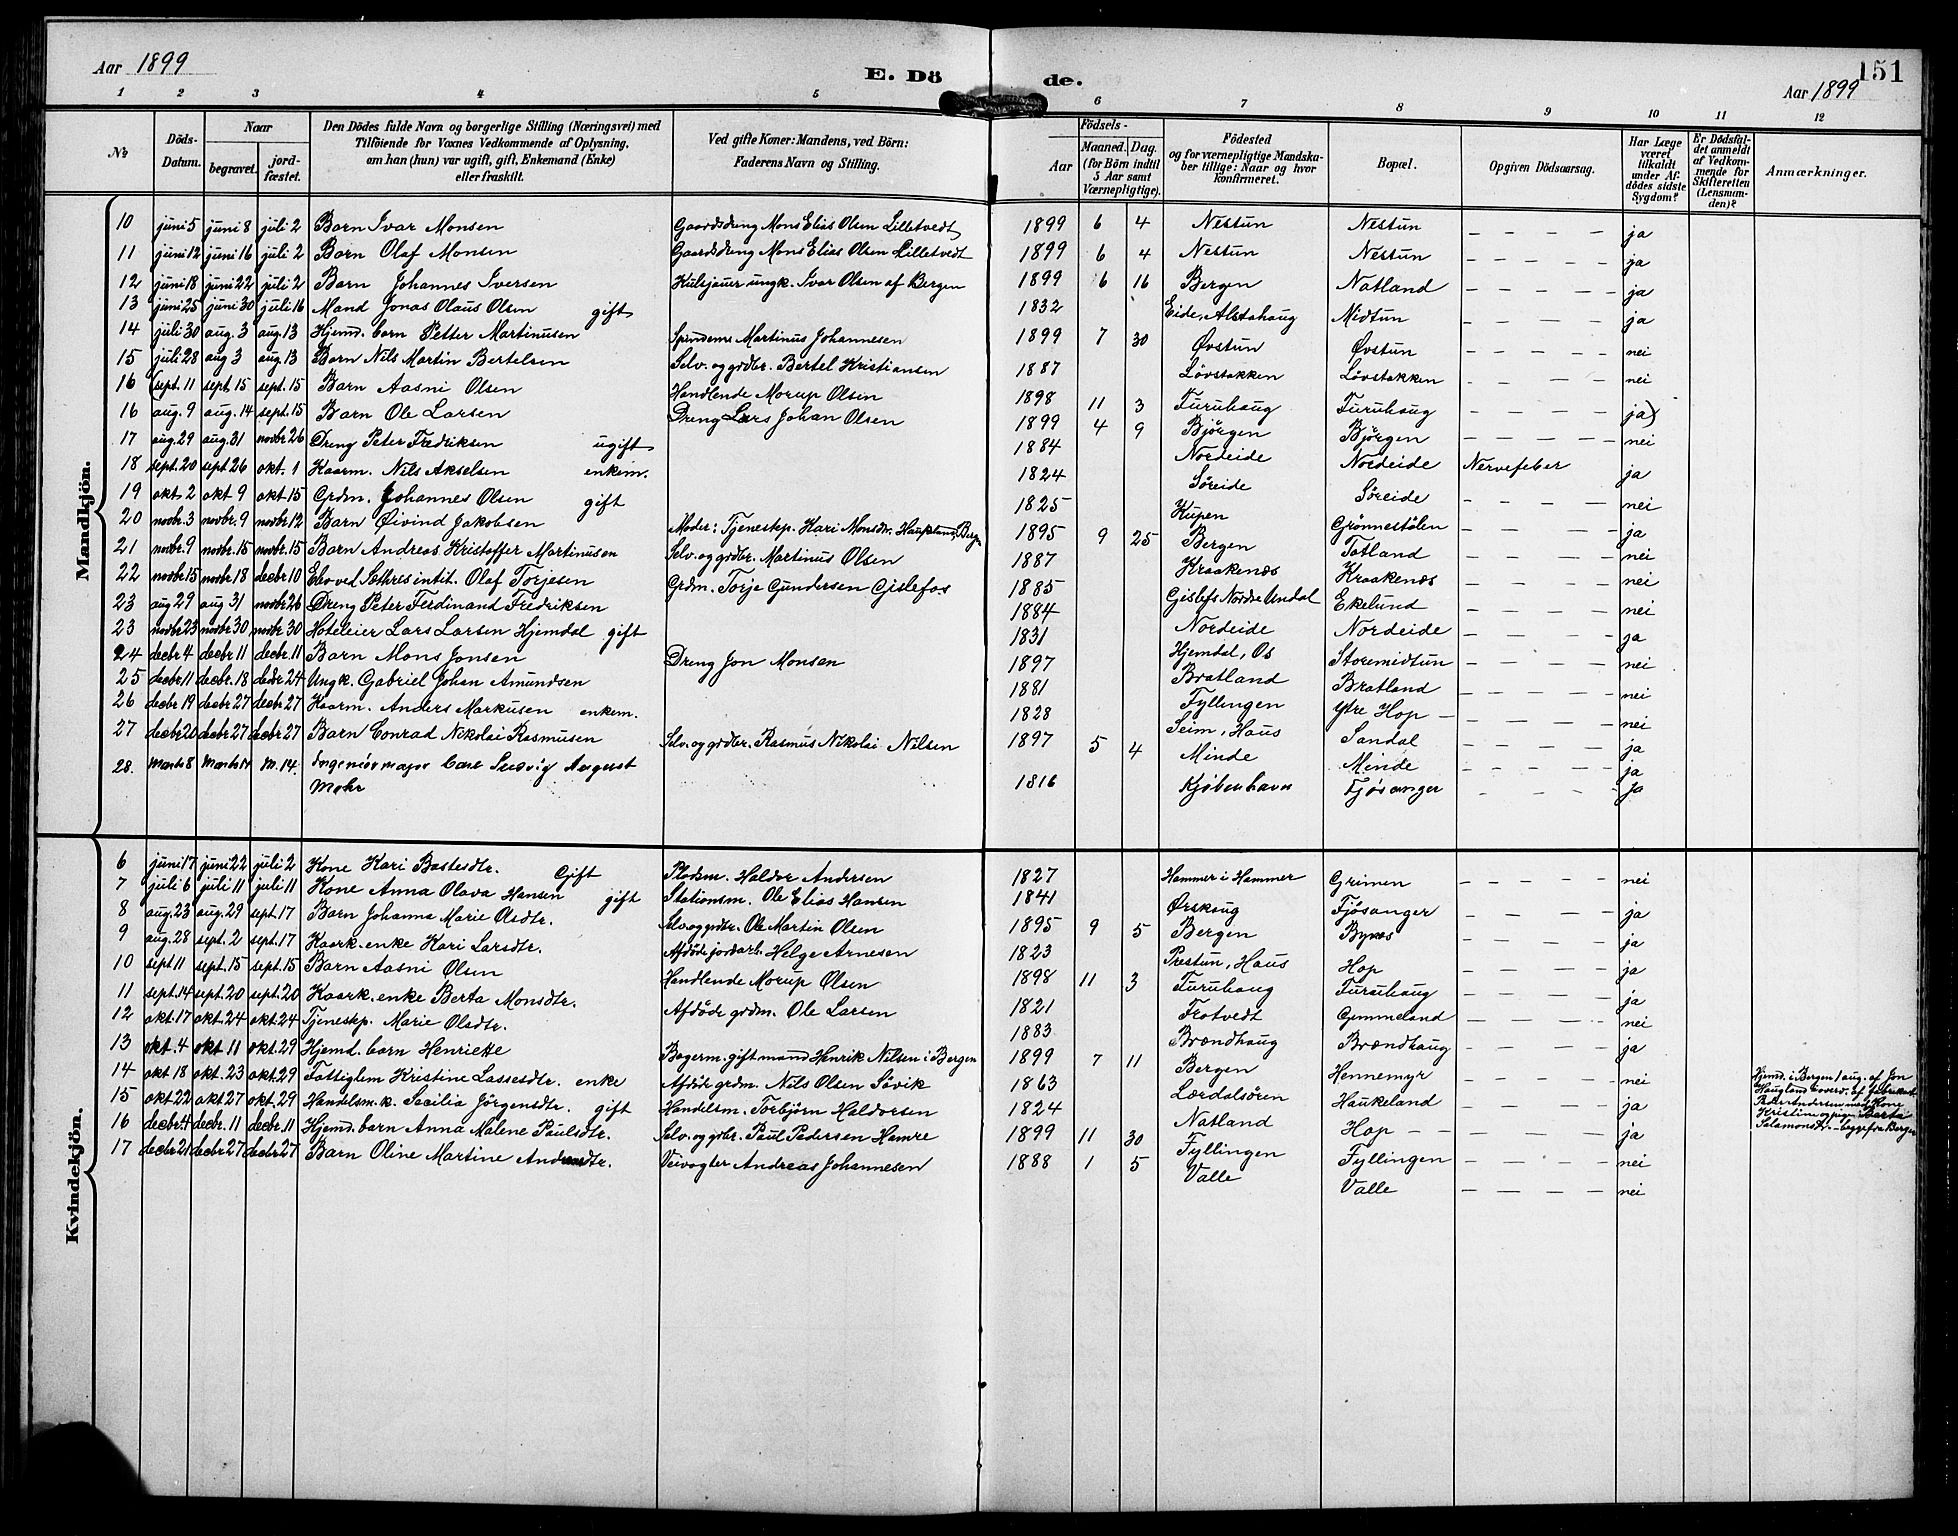 Aar 1899
E. Dö de.
151
Aar 1899
1 2 3 4 5 6 7 8 9 10 11 12
№
Döds-Datum.
Naar
begravet.
jord-fæstet.
Den Dödes fulde Navn og borgerlige Stilling (Næringsvei) med
Tilföiende for Voxnes Vedkommende af Oplysning,
om han (hun) var ugift, gift, Enkemand (Enke)
eller fraskilt.
Ved gifte Koner: Mandens, ved Börn:
Faderens Navn og Stilling.
Födsels-
Aar
Maaned. Dag.
(for Börn indtil
5 Aar samt
Værnepligtige).
Födested
og for værnepligtige Mandska-
ber tillige: Naar og hvor
konfirmeret.
Bopæl.
Opgiven Dödsaarsag.
Har Læge
været
tilkaldt
under Af-
dödes sidste
Sygdom?
Er Dödsfal-
det anmeldt
af Vedkom-
mende for
Skifteretten
(Lensman-
den)?
Anmærkninger.
Mandkjön.
10 juni 5 juni 8 juli 2 Barn Ivar Monsen Gaardsdreng Mons Elias Olsen Lilletvedt 1899 6 4 Nestun Nestun – – – – ja
11 juni 12 juni 16 juli 2 Barn Olaf Monsen Gaardsdreng Mons Elias Olsen Lilletvedt 1899 6 4 Nestun Nestun – – – – ja
12 juni 18 juni 22 juli 2 Barn Johannes Iversen Kulsjauer ungk. Ivar Olsen af Bergen 1899 6 16 Bergen Natland – – – – ja
13 juni 25 juni 30 juli 16 Mand Jonas Olaus Olsen gift 1832 Eide, Alstahaug Midtun – – – – ja
14 juli 30 aug. 3 aug 13 Hjemd. barn Petter Martinusen Spindem. Martinus Johannesen 1899 7 30 Øvstun Øvstun – – – – nei
15 juli 28 aug 3 aug 13 Barn Nils Martin Bertelsen Selv. og grdbr. Bertel Kristiansen 1887 Lövstakken Lövstakken – – – – nei
16 (sept. 11 sept. 15 sept. 15 Barn Aasni Olsen Handlende Morup Olsen 1898 11 3 Furuhaug Furuhaug – – – – ja)
16 aug. 9 aug. 14 sept. 15 Barn Ole Larsen Dreng Lars Johan Olsen 1899 4 9 Björgen Björgen – – – – nei
17 aug. 29 aug. 31 novbr 26 Dreng Peter Fredriksen ugift 1884 Nordeide Nordeide Nervefeber ja
18 sept. 20 sept 26 okt. 1 Kaarm. Nils Akselsen enkem. 1824 Søreide Søreide – – – – nei
19 okt 2 okt 9 okt. 15 Grdm. Johannes Olsen gift 1825 Kupen Grönnestölen – – – – ja
20 novbr. 3 novbr. 9 novbr 12 Barn Øivind Jakobsen Moder: Tjenestep. Kari Monsdtr. Haukeland, Bergen 1895 9 25 Bergen Totland – – – – nei
21 novbr. 9 novbr. 15 novbr. 15 Barn Andreas Kristoffer Martinusen Selv. og grdbr. Martinus Olsen 1887 Kraakenæs Kraakenæs – – – – nei
22 novbr 15 novbr 18 decbr 10 Elev ved Sethres intit. Olaf Torjesen Grdm. Torje Gundersen Gislefos 1885 Gislefs Nordre Undal Ekelund – – – – nei
23 aug 29 aug 31 novbr 26 Dreng Peter Ferdinand Fredriksen 1884 Nordeide Nordeide – – – – ja
23 novbr 23 novbr 30 novbr. 30 Hoteleier Lars Larsen Hjemdal gift 1831 Hjemdal, Os Storemidtun – – – – nei
24 decbr 4 decbr 11 decbr. 11 Barn Mons Jonsen Dreng Jon Monsen 1897 Bratland Bratland – – – – nei
25 decbr 11 decbr. 18 decbr 24 Ungk. Gabriel Johan Amundsen 1881 Fyllingen Ytre Hop – – – – nei
26 decbr 19 decbr 27 decbr 27 Kaarm. Anders Markusen enkem. 1828 Seim, Haus Sandal – – – – ja
27 decbr 20 decbr 27 decbr 27 Barn Conrad Nikolai Rasmusen Selv. og grdbr. Rasmus Nikolai Nilsen 1897 5 4 Minde Minde – – – – ja
28. Marts 8 Marts 14 M. 14. Ingeniörmajor Carl Ludvig August
Mohr 1816 Kjøbenhavn Fjösanger – – – – ja
Kvindekjön.
6 juni 17 juni 22 juli 2 Kone Kari Bastesdtr. Gift Pladsm. Haldor Andersen 1827 Hammer i Hammer Grimen – – – – nei
7 juli 6 juli 11 juli 11 Kone Anna Olava Hansen gift Stationsm. Ole Elias Hansen 1841 Ørskaug Fjösanger – – – – ja
8 aug. 23 aug. 29 sept. 17 Barn Johanna Marie Olsdtr. Selv. og grdbr. Ole Martin Olsen 1895 9 5 Bergen Bynes – – – – ja
9 aug. 28 sept. 2 sept. 17 Kaark. enke Kari Larsdtr. Afdöde jordarb. Helge Arnesen 1823 Prestun, Haus Hop – – – – ja
10 sept 11 sept. 15 sept. 15 Barn Aasni Olsen Handlende Morup Olsen 1898 11 3 Furuhaug Furuhaug – – – – ja
11 sept. 14 sept. 20 sept. 20 Kaark. enke Berta Monsdtr. Afdöde grdm. Ole Larsen 1821 Frotvedt Gimmeland – – – – nei
12 okt. 17 okt. 24 okt. 24 Tjenestep. Marie Olsdtr. 1883 Brændhaug Brændhaug – – – – ja
13 okt. 4 okt 11 okt. 29 Hjemd. barn Henriette Bagerm. gift mand Henrik Nilsen i Bergen 1899 7 11 Bergen Hennemyr – – – – nei
Hjemd. i Bergen 1 aug. af Jon
Haugland overv. af fabrikarb.
Peder Andersen med Kone
Kristine og pige Berta
Salamonsdtr. – begge fra Bergen
14 okt 18 okt. 23 okt. 29 Fattiglem Kristine Lassesdtr. enke Afdöde grdm. Nils Olsen Sövik 1863 Lærdalsören Haukeland – – – – ja
15 okt. 22 okt 27 okt. 29 Handelsm.k. Secilia Jörgensdtr. gift Handelsm. Torbjörn Haldorsen 1824 Natland Hop – – – – ja
16 decbr 4 decbr. 11 decbr 11 Hjemd. barn Anna Malene Paulsdtr. Selv. og grdbr. Paul Pedersen Hamre 1899 11 30 Fyllingen Fyllingen – – – – nei
17 decbr 21 decbr 27 decbr 27 Barn Oline Martine Andreasdtr. Veivogter Andreas Johannesen 1888 1 5 Valle Valle – – – – nei